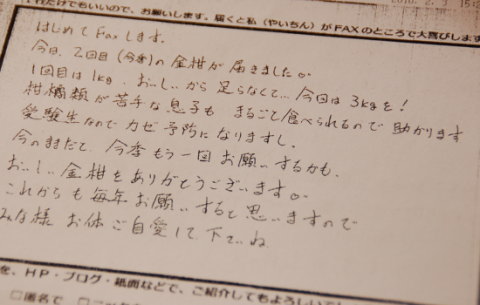 これだけでもいいので、お願いします。届くと私(やいちん)がFAXのところで大喜びします
はじめてFaxします。
今日、2回目(今季)の金柑が届きました。
1回目は1kg、おいしいから足らなくて、今回は3kgを!
柑橘類が苦手な息子もまるごと食べられるので助かります
受験生なのでカゼ予防になりますし。
今のままだと、今季もう一回お願いするかも。
おいしい金柑をありがとうございます。
これからも毎年お願いすると思いますので
みな様 お体ご自愛して下さいね
を、HP・ブログ・紙面などで、ご紹介してもよろしいで
□匿名で